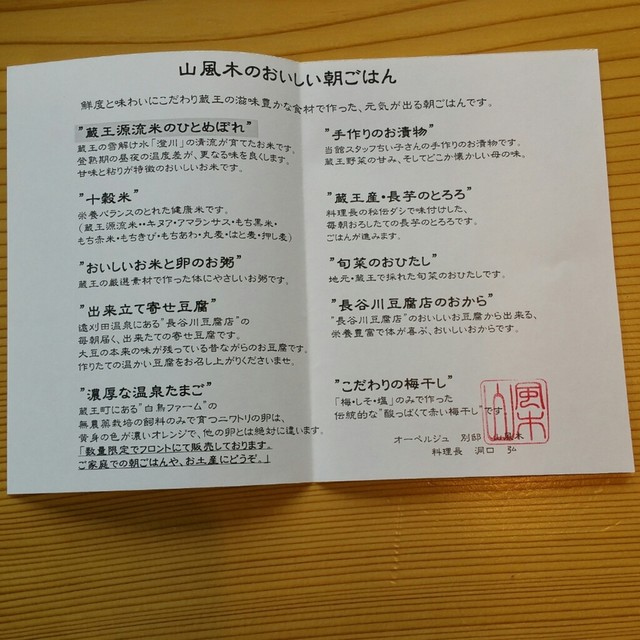 山風木のおいしい朝ごはん
鮮度と味わいにこだわり蔵王の滋味豊かな食材で作った、元気が出る朝ごはんです。
"蔵王源流米のひとめぼれ"
蔵王の雪解け水「澄川」の清流が育てたお米です。
登熟期の昼夜の温度差が、更なる味を良くします。
甘味と粘りが特徴のおいしいお米です。
"十穀米"
栄養バランスのとれた健康米です。
(蔵王源流米・・キヌア・アマランサス・もち黒米・
もち赤米・もちきび・もちあわ・丸麦・はと麦・押し麦)
"おいしいお米と卵のお粥"
蔵王の厳選素材で作った体にやさしいお粥です。
"出来立て寄せ豆腐"
遠刈田温泉にある"長谷川豆腐店"の
毎朝届く、出来たての寄せ豆腐です。
大豆の本来の味が残っている昔ながらのお豆腐です。
作りたての温かい豆腐をお召し上がりくださいませ。
"濃厚な温泉たまご"
蔵王町にある"白鳥ファーム"の
無農薬栽培の飼料のみで育つニワトリの卵は、
黄身の色が濃いオレンジで、他の卵とは絶対に違います。
「数量限定でフロントにて販売しております。
ご家庭での朝ごはんや、お土産にどうぞ。」
"手作りのお漬物"
当館スタッフちい子さんの手作りのお漬物です。
蔵王野菜の甘み、そしてどこか懐かしい母の味。
"蔵王産・長芋のとろろ"
料理長の秘伝ダシで味付けした、
毎朝おろしたての長芋のとろろです。
ごはんが進みます。
"旬菜のおひたし"
地元・蔵王で採れた旬菜のおひたしです。
"長谷川豆腐店のおから"
"長谷川豆腐店"のおいしいお豆腐から出来る、
栄養豊富で体が喜ぶ、おいしいおからです。
"こだわりの梅干し"
「梅・しそ・塩」のみで作った
伝統的な"酸っぱくて赤い梅干し"です
オーベルジュ 別邸 山風木
料理長 洞口
山風木